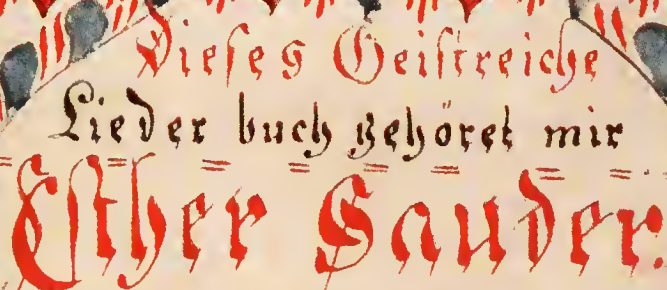 Dieses Geistreiche
Lieder buch gehöret mir
Esther Sauder.